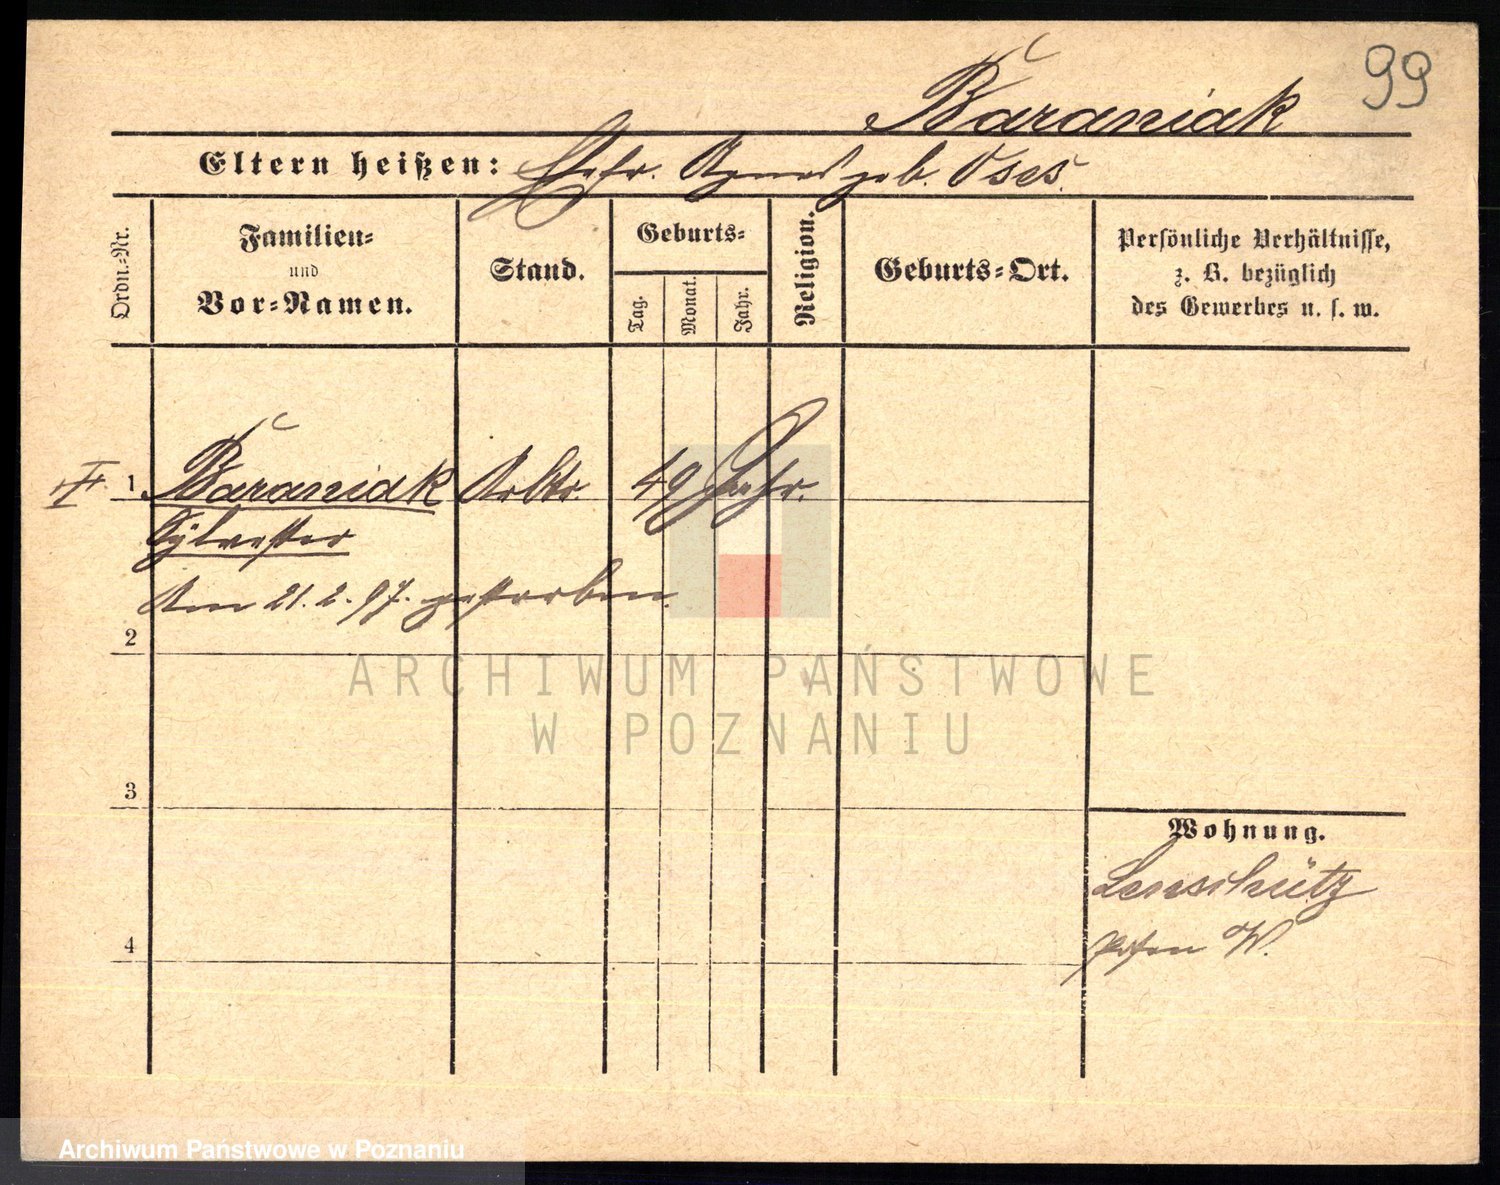 99
Baraniak
Eltern heißen: Ehefr. Agnes geb. Oses.
Ordn.-Nr.
Familien-
und
Vor-Namen.
Stand.
Geburts-
Tag.
Monat.
Jahr.
Religion.
Geburts-Ort.
Persönliche Verhältnisse,
z. B. bezüglich
des Gewerbes u. s. w.
1 Baraniak Arbtr. 49 Jahr.
Sylvester
Am 21.2.97. gestorben.
2
ARCHIWUM PAŃSTWOWE
W POZNANIU
3
Wohnung.
Lenschütz
Posen W.
4
Archiwum Państwowe w Poznaniu